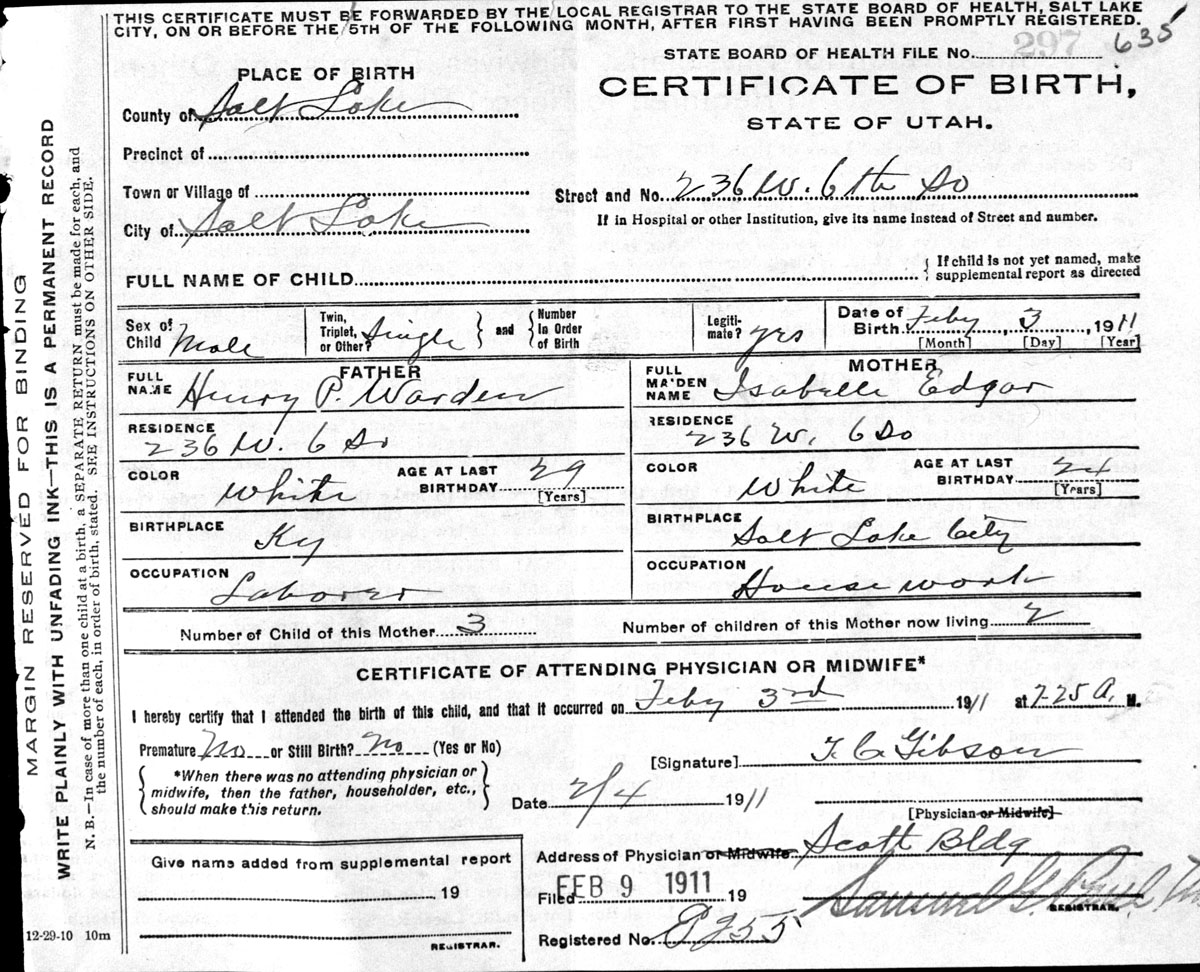 THIS CERTIFICATE MUST BE FORWARDED BY THE LOCAL REGISTRAR TO THE STATE BOARD OF HEALTH, SALT LAKE
CITY, ON OR BEFORE THE 5TH OF THE FOLLOWING MONTH, AFTER FIRST HAVING BEEN PROMPTLY REGISTERED.
STATE BOARD OF HEALTH FILE No. 297 635
PLACE OF BIRTH
CERTIFICATE OF BIRTH,
STATE OF UTAH.
County of Salt Lake
Precinct of
Town or Village of
Street and No. 236 W. 6th So
City of Salt Lake
If in Hospital or other Institution, give its name instead of Street and number.
FULL NAME OF CHILD
If child is not yet named, make
supplemental report as directed
Sex of Child Male
Twin, Triplet, or Other? Single and Number In Order of Birth
Legiti-mate? yrs
Date of Birth Feby 3, 1911
[Month] [Day] [Year]
FATHER
FULL NAME Henry P. Warden
RESIDENCE 236 W. 6 So
COLOR White AGE AT LAST BIRTHDAY 29 [Years]
BIRTHPLACE Ky
OCCUPATION Laborer
MOTHER
FULL MAIDEN NAME Isabelle Edgar
RESIDENCE 236 W. 6 So
COLOR White AGE AT LAST BIRTHDAY 24 [Years]
BIRTHPLACE Salt Lake City
OCCUPATION House work
Number of Child of this Mother 3 Number of children of this Mother now living 2
CERTIFICATE OF ATTENDING PHYSICIAN OR MIDWIFE*
I hereby certify that I attended the birth of this child, and that it occurred on Feby 3rd 1911 at 7-25 A. M.
Premature No or Still Birth? No (Yes or No)
*When there was no attending physician or
midwife, then the father, householder, etc.,
should make this return.
[Signature] T. C. Gibson
Date 2/4 1911
[Physician or Midwife]
Give name added from supplemental report
19
REGISTRAR.
Address of Physician or Midwife Scott Bldg
Filed FEB 9 1911 19
Samuel G.
REGISTRAR.
Registered No.
12-29-10 10m
MARGIN RESERVED FOR BINDING
WRITE PLAINLY WITH UNFADING INK—THIS IS A PERMANENT RECORD
N. B.—In case of more than one child at a birth, a SEPARATE RETURN must be made for each, and
the number of each, in order of birth, stated. SEE INSTRUCTIONS ON OTHER SIDE.